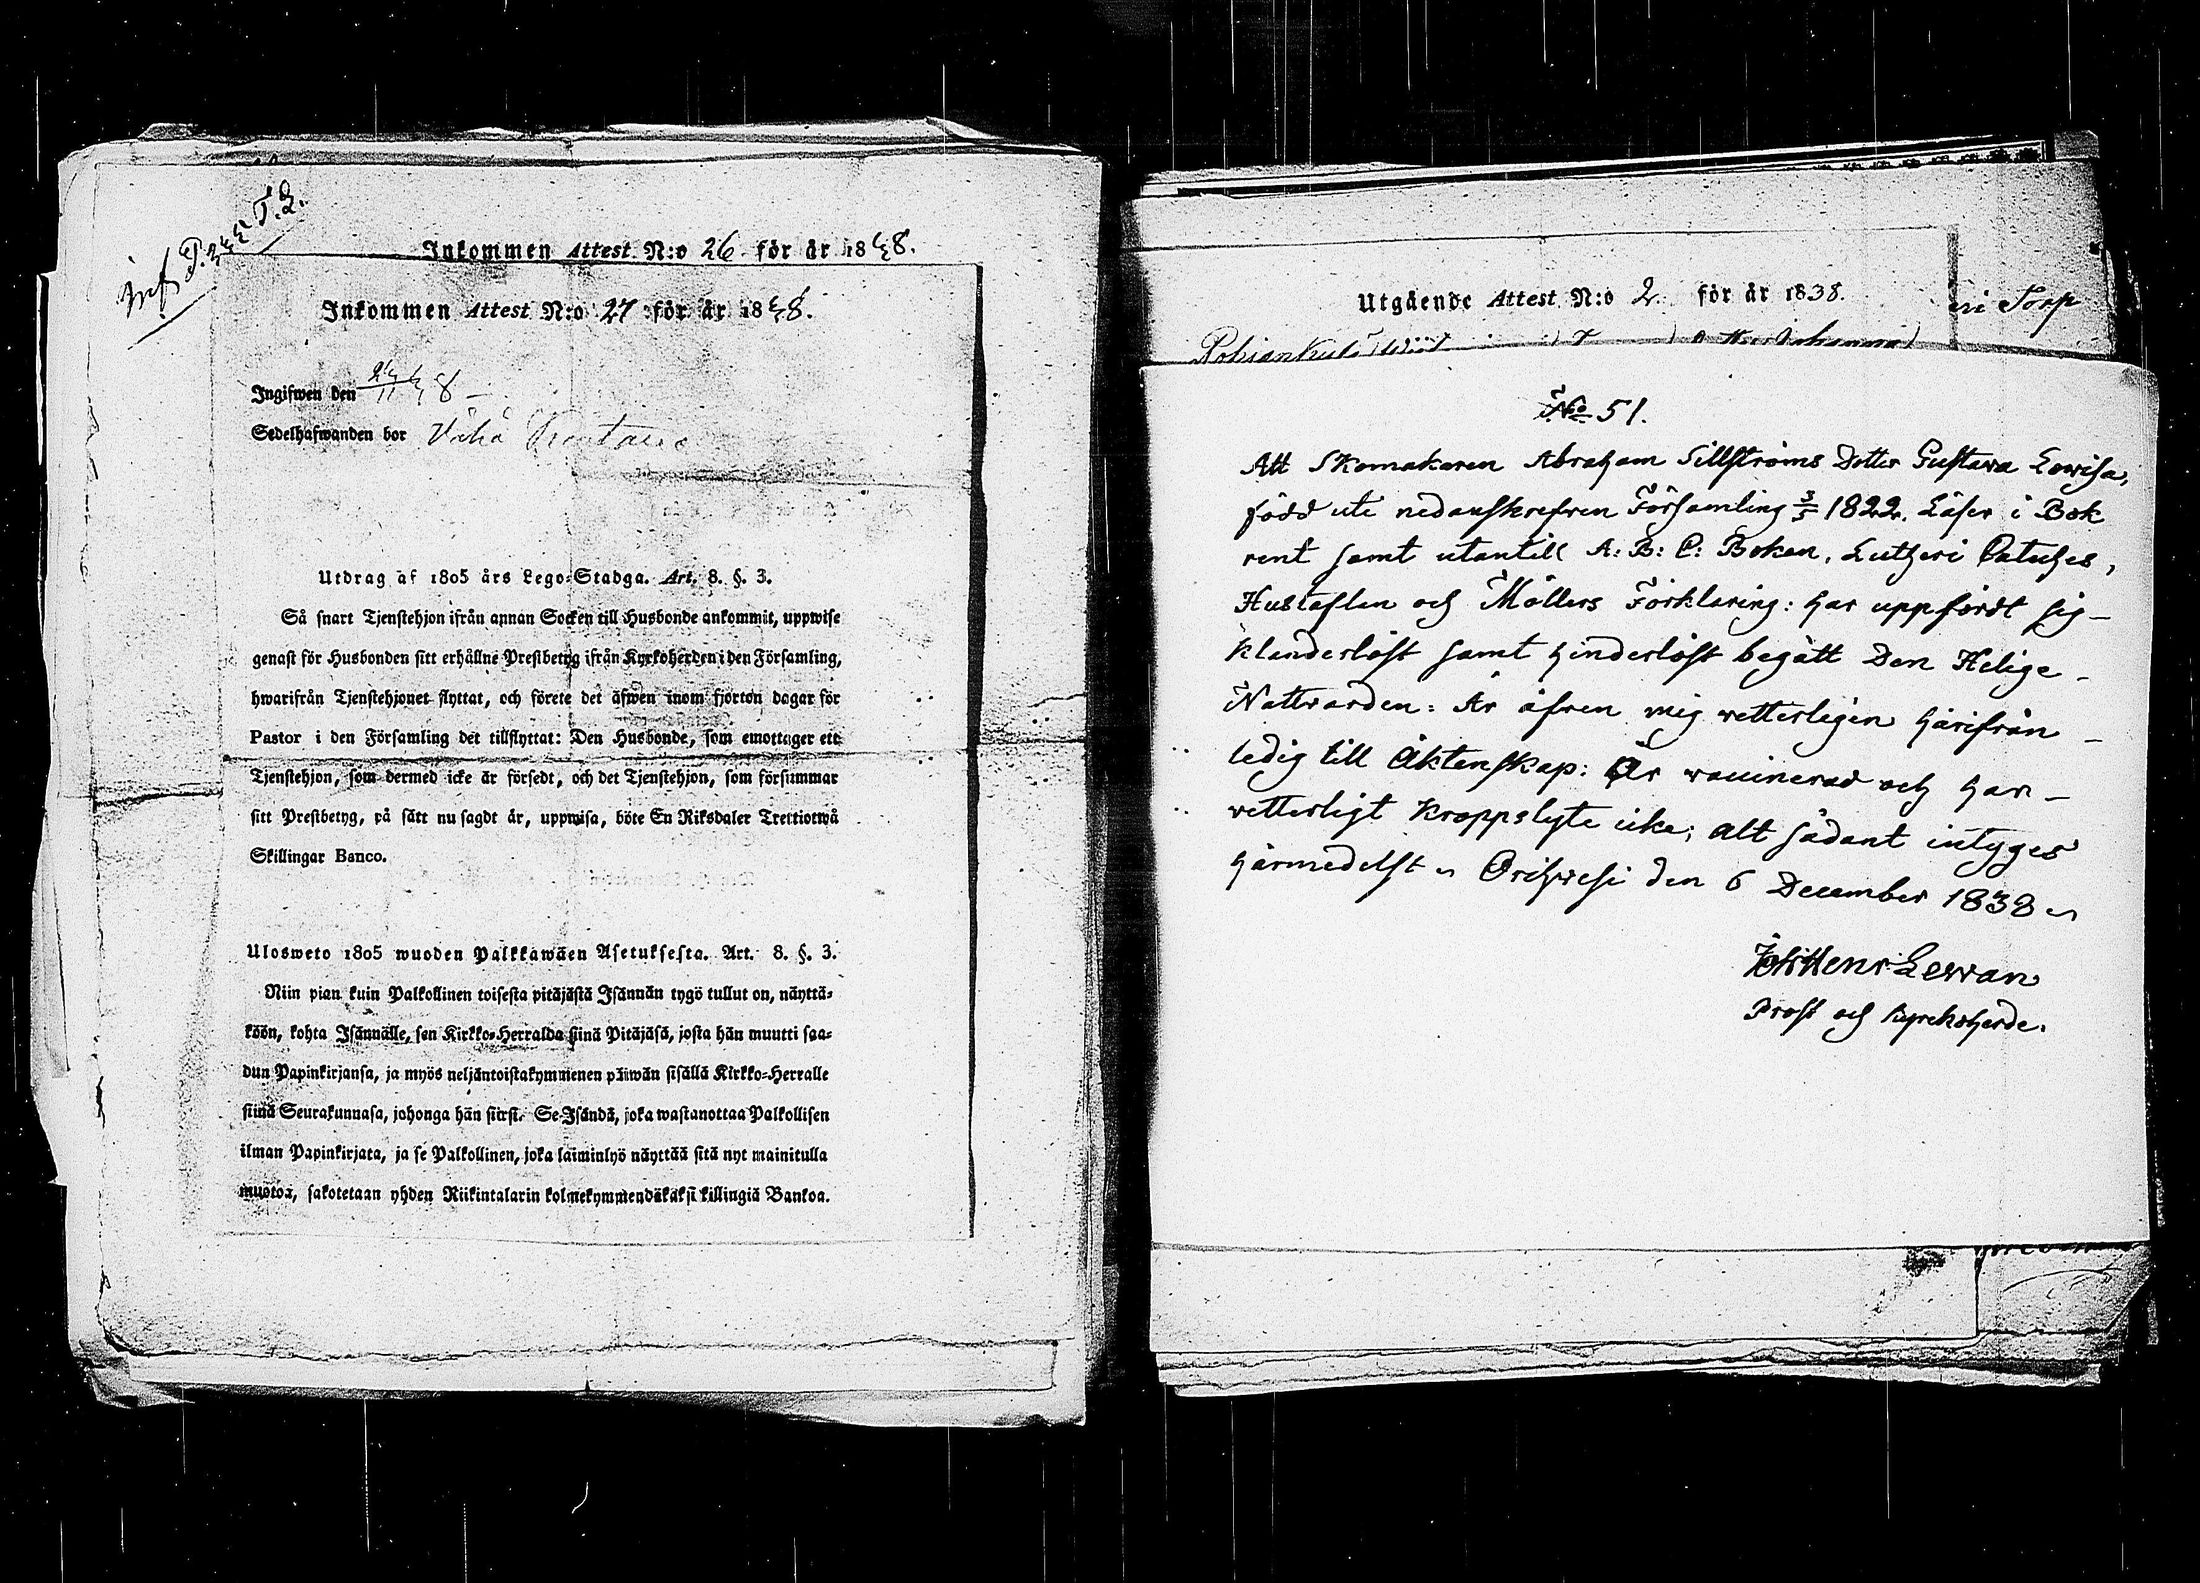 Inf. P. T. L.
Inkommen Attest N:o 26 för år 1838.
Inkommen Attest N:o 27 för år 1838.
Ingifwen den 38
Sedelhafwanden bor Vähä
Utdrag af 1805 års Lego-Stadga. Art. 8. §. 3.
Så snart Tjenstehjon ifrån annan Socken till Husbonde ankommit, uppwise
genast för Husbonden sitt erhållne Prestbetyg ifrån Kyrkoherden i den Församling,
hwarifrån Tjenstehjonet flyttat, och förete det äfwen inom fjorton dagar för
Pastor i den Församling det tillflyttat: Den Husbonde, som emottager ett
Tjenstehjon, som dermed icke är försedt, och det Tjenstehjon, som försummar
sitt Prestbetyg, på sätt nu sagdt är, uppwisa, böte En Riksdaler Trettiotwå
Skillingar Banco.
Ulosweto 1805 wuoden Palkkawäen Asetuksesta. Art. 8. §. 3.
Niin pian kuin Palkollinen toisesta pitäjästä Isännän tygö tullut on, näyttä-
köön, kohta Isännälle, sen Kirkko-Herralda siinä Pitäjäsä, josta hän muutti saa-
dun Papinkirjansa, ja myös neljäntoistakymmenen päiwän sisällä Kirkko-Herralle
siinä Seurakunnasa, johonga hän siirsi. Se Isändä, joka wastanottaa Palkollisen
ilman Papinkirjata, ja se Palkollinen, joka laiminlyö näyttää sitä nyt mainitulla
muotoa, sakotetaan yhden Riikintalarin kolmekymmendäkaksi killingiä Bankoa.
Utgående Attest N:o 2. för år 1838.
Torp
No 51.
Att Skomakaren Abraham Sillströms Dotter Gustava Lovisa,
född uti nedanskrefven Församling 3/5 1822. Läser i Bok
rent samt utantill A: B: C: Boken, Lutheri Cateches,
Hustaflen och Möllers Förklaring: har uppfördt sig –
klanderlöst samt hinderlöst begått Den Helige –
Nattvarden: Är äfven mig vetterligen härifrån –
ledig till Äktenskap: Är vaccinerad och har –
vetterligt Kroppslyte icke; alt sådant intyges
härmedelst Orihvesi den 6 December 1838
Joh Henr Levvan
Prost och Kyrckoherde.